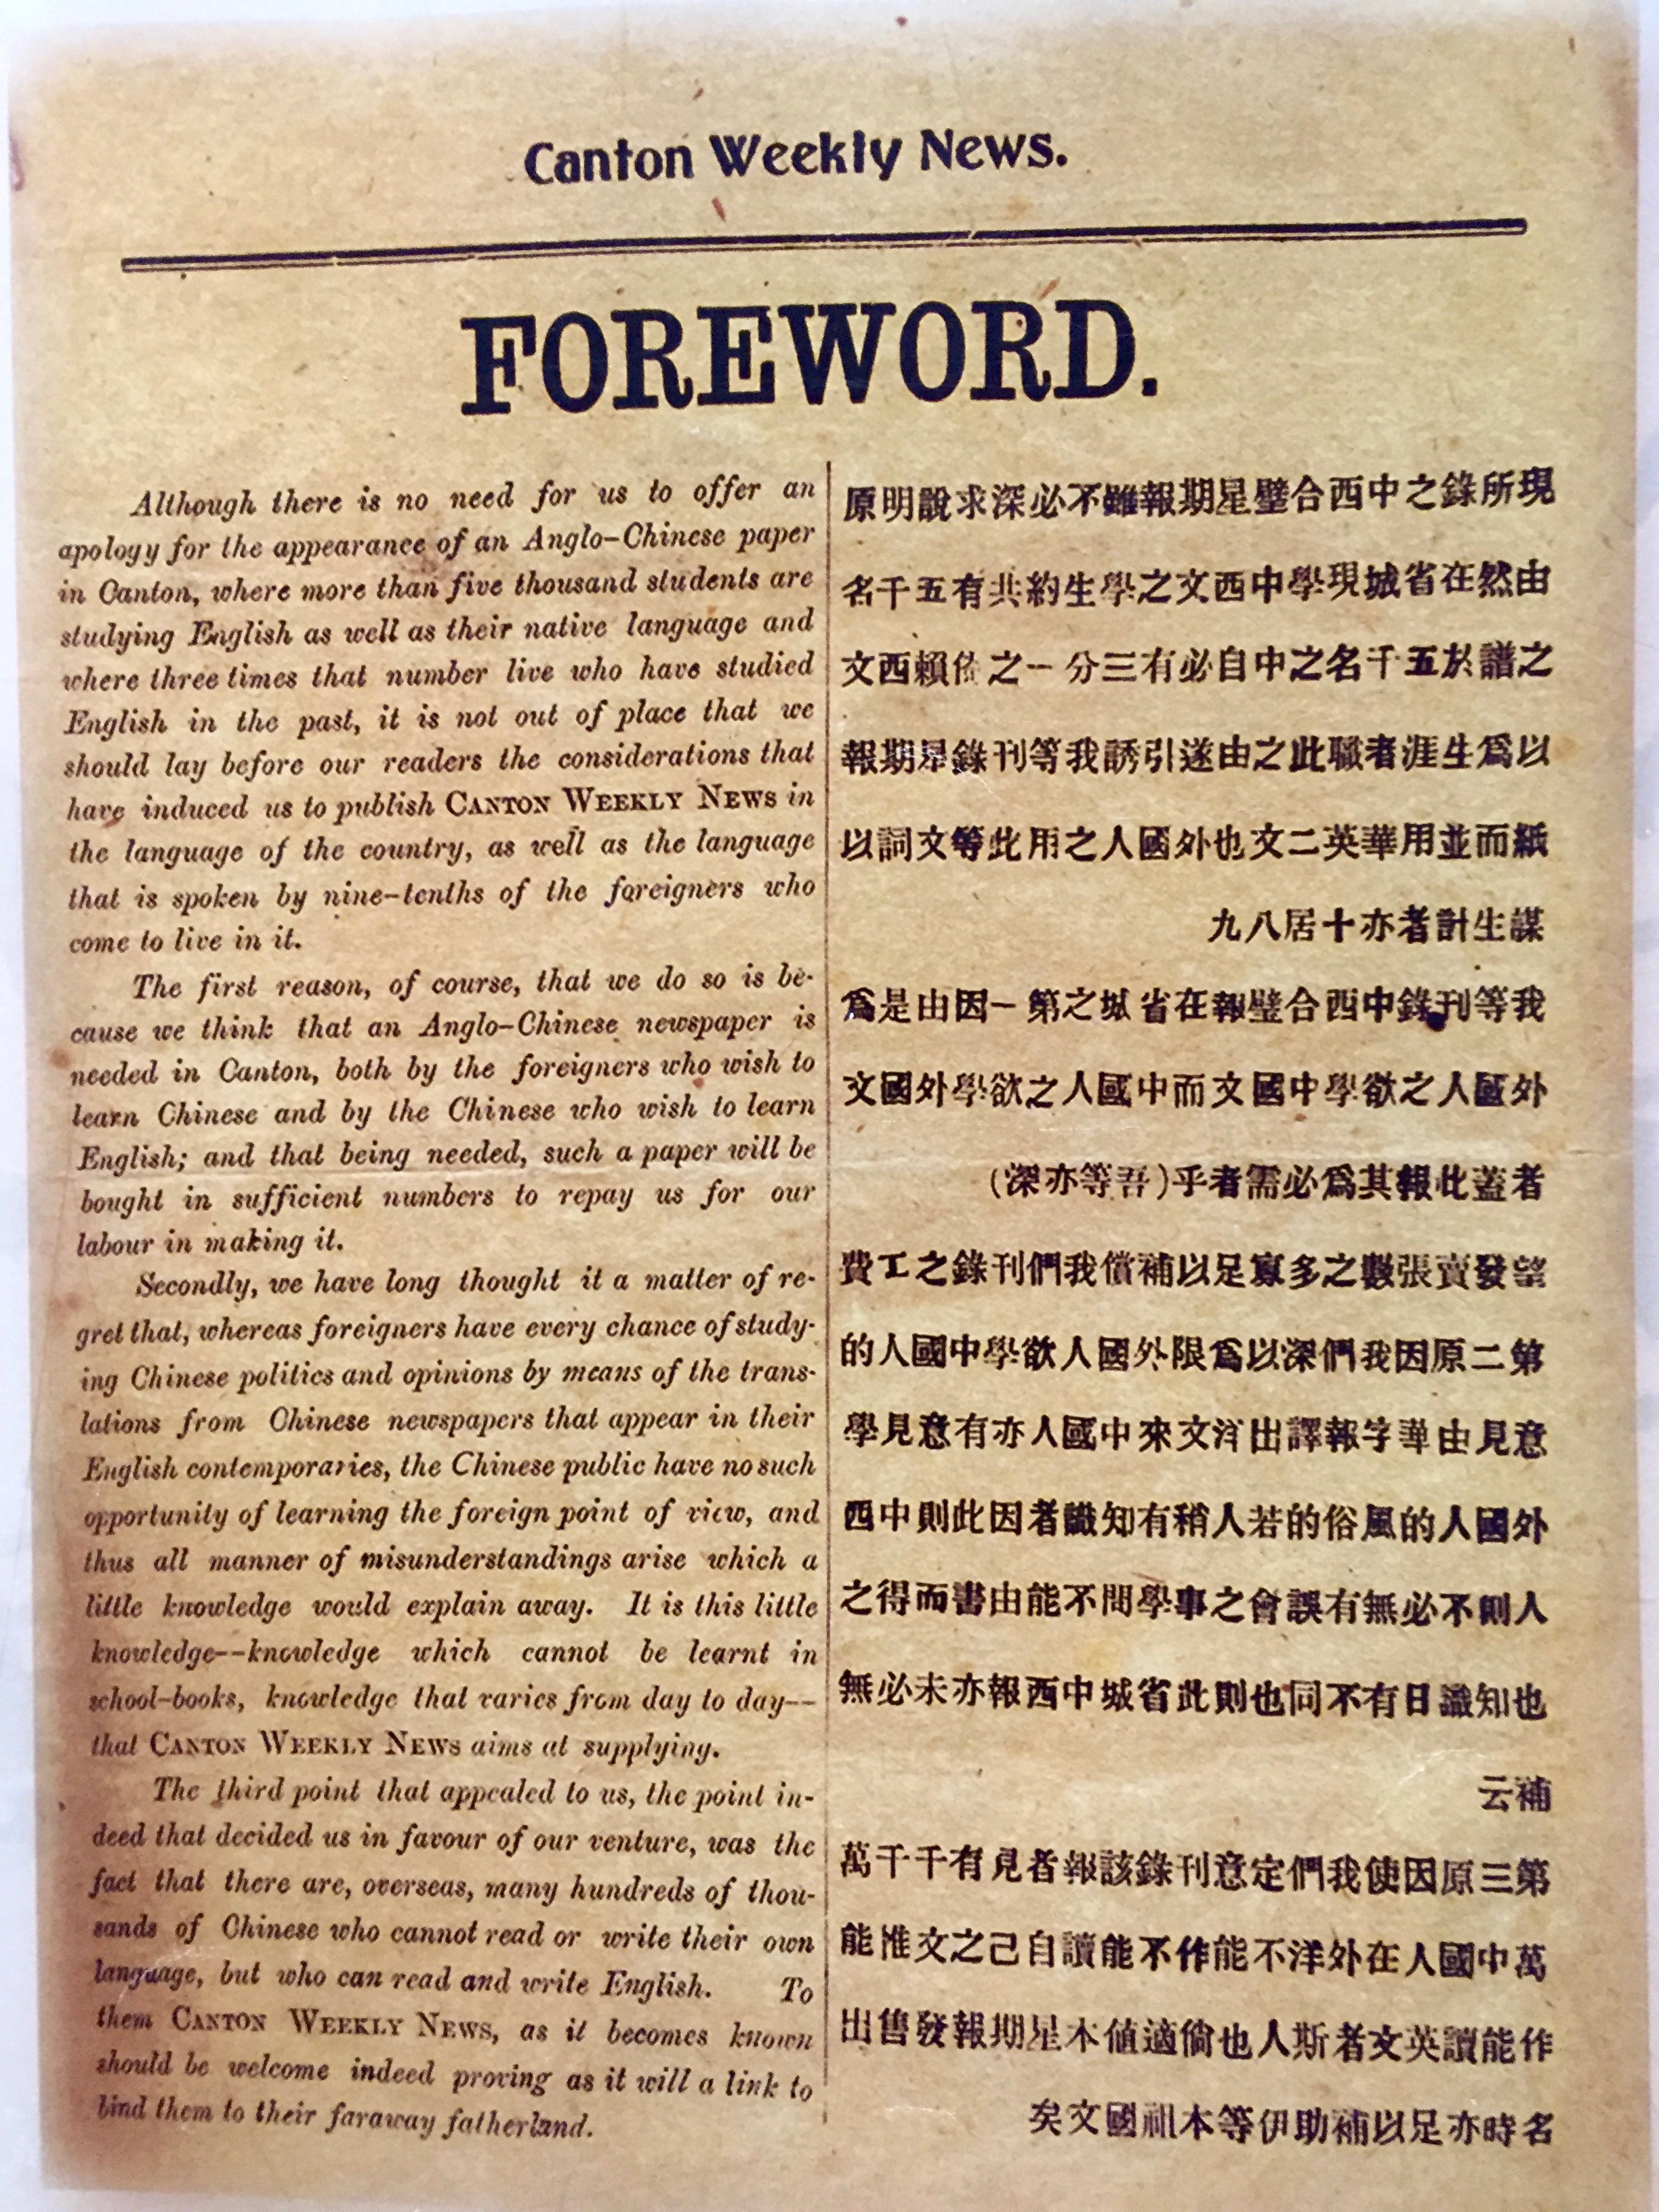 Canton Weekly News.
FOREWORD.
Although there is no need for us to offer an
apology for the appearance of an Anglo-Chinese paper
in Canton, where more than five thousand students are
studying English as well as their native language and
where three times that number live who have studied
English in the past, it is not out of place that we
should lay before our readers the considerations that
have induced us to publish CANTON WEEKLY NEWS in
the language of the country, as well as the language
that is spoken by nine-tenths of the foreigners who
come to live in it.
The first reason, of course, that we do so is be-
cause we think that an Anglo-Chinese newspaper is
needed in Canton, both by the foreigners who wish to
learn Chinese and by the Chinese who wish to learn
English; and that being needed, such a paper will be
bought in sufficient numbers to repay us for our
labour in making it.
Secondly, we have long thought it a matter of re-
gret that, whereas foreigners have every chance of study-
ing Chinese politics and opinions by means of the trans-
lations from Chinese newspapers that appear in their
English contemporaries, the Chinese public have no such
opportunity of learning the foreign point of view, and
thus all manner of misunderstandings arise which a
little knowledge would explain away. It is this little
knowledge--knowledge which cannot be learnt in
school-books, knowledge that varies from day to day--
that CANTON WEEKLY NEWS aims at supplying.
The third point that appealed to us, the point in-
deed that decided us in favour of our venture, was the
fact that there are, overseas, many hundreds of thou-
sands of Chinese who cannot read or write their own
language, but who can read and write English. To
them CANTON WEEKLY NEWS, as it becomes known
should be welcome indeed proving as it will a link to
bind them to their faraway fatherland.
現所錄之中西合璧星期報雖不必深求說明原
由然在省城現學中西文之學生約共有五千名
之譜於五千名之中自必有三分一之依賴西文
以爲生涯者職此之由遂引誘我等刊錄星期報
紙而並用華英二文也外國人之用此等文詞以
謀生計者亦十居八九
我等刊錄中西合璧報在省城之第一因由是爲
外國人之欲學中國文而中國人之欲學外國文
者蓋此報其爲必需者乎(吾等亦深)
望發賣張數之多寡足以補償我們刊錄之工費
第二原因我們深以爲限外國人欲學中國人的
意見由華字報譯出洋文來中國人亦有意見學
外國人的風俗的若人稍有知識者因此則中西
人則不必無有誤會之事學問不能由書而得之
也知識日有不同也則此省城中西報亦未必無
補云
第三原因使我們定意刊錄該報者見有千千萬
萬中國人在外洋不能作不能讀自己之文惟能
作能讀英文者斯人也倘適值本星期報發售出
名時亦足以補助伊等本祖國文矣